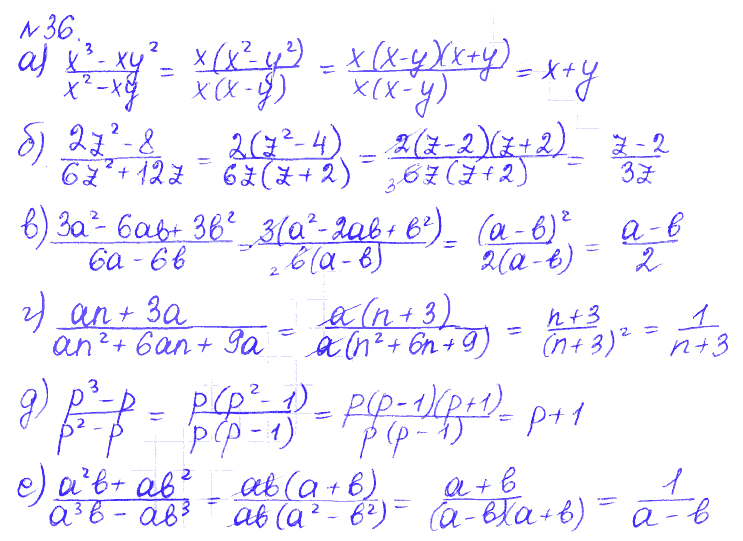 №36.
а) (x³ - xy²)/(x² - xy) = x(x² - y²)/x(x - y) = x(x-y)(x+y)/x(x-y) = x+y
б) (2z² - 8)/(6z² + 12z) = 2(z² - 4)/6z(z + 2) = 2(z-2)(z+2)/₃6z(z+2) = (z-2)/3z
в) (3a² - 6aв + 3в²)/(6a - 6в) = 3(a² - 2aв + в²)/₂6(a - в) = (a-в)²/2(a-в) = (a-в)/2
г) (an + 3a)/(an² + 6an + 9a) = a(n + 3)/a(n² + 6n + 9) = (n+3)/(n+3)² = 1/(n+3)
д) (p³ - p)/(p² - p) = p(p² - 1)/p(p - 1) = p(p-1)(p+1)/p(p-1) = p+1
е) (a²в + aв²)/(a³в - aв³) = aв(a + в)/aв(a² - в²) = (a + в)/(a-в)(a+в) = 1/(a-в)